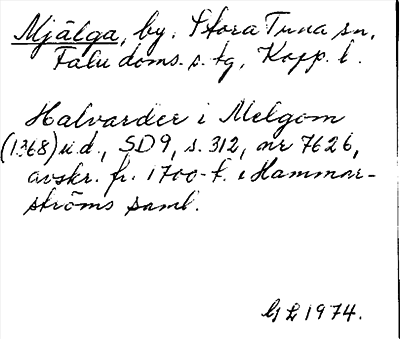 Mjälga, by. Stora Tuna sn,
Falu doms. s. tg, Kopp. l.
Halvarder i Melgom
(1368) u.d., SD 9, s. 312, nr 7626,
avskr. fr. 1700-t. i Hammar-
ströms saml.
GL 1974.